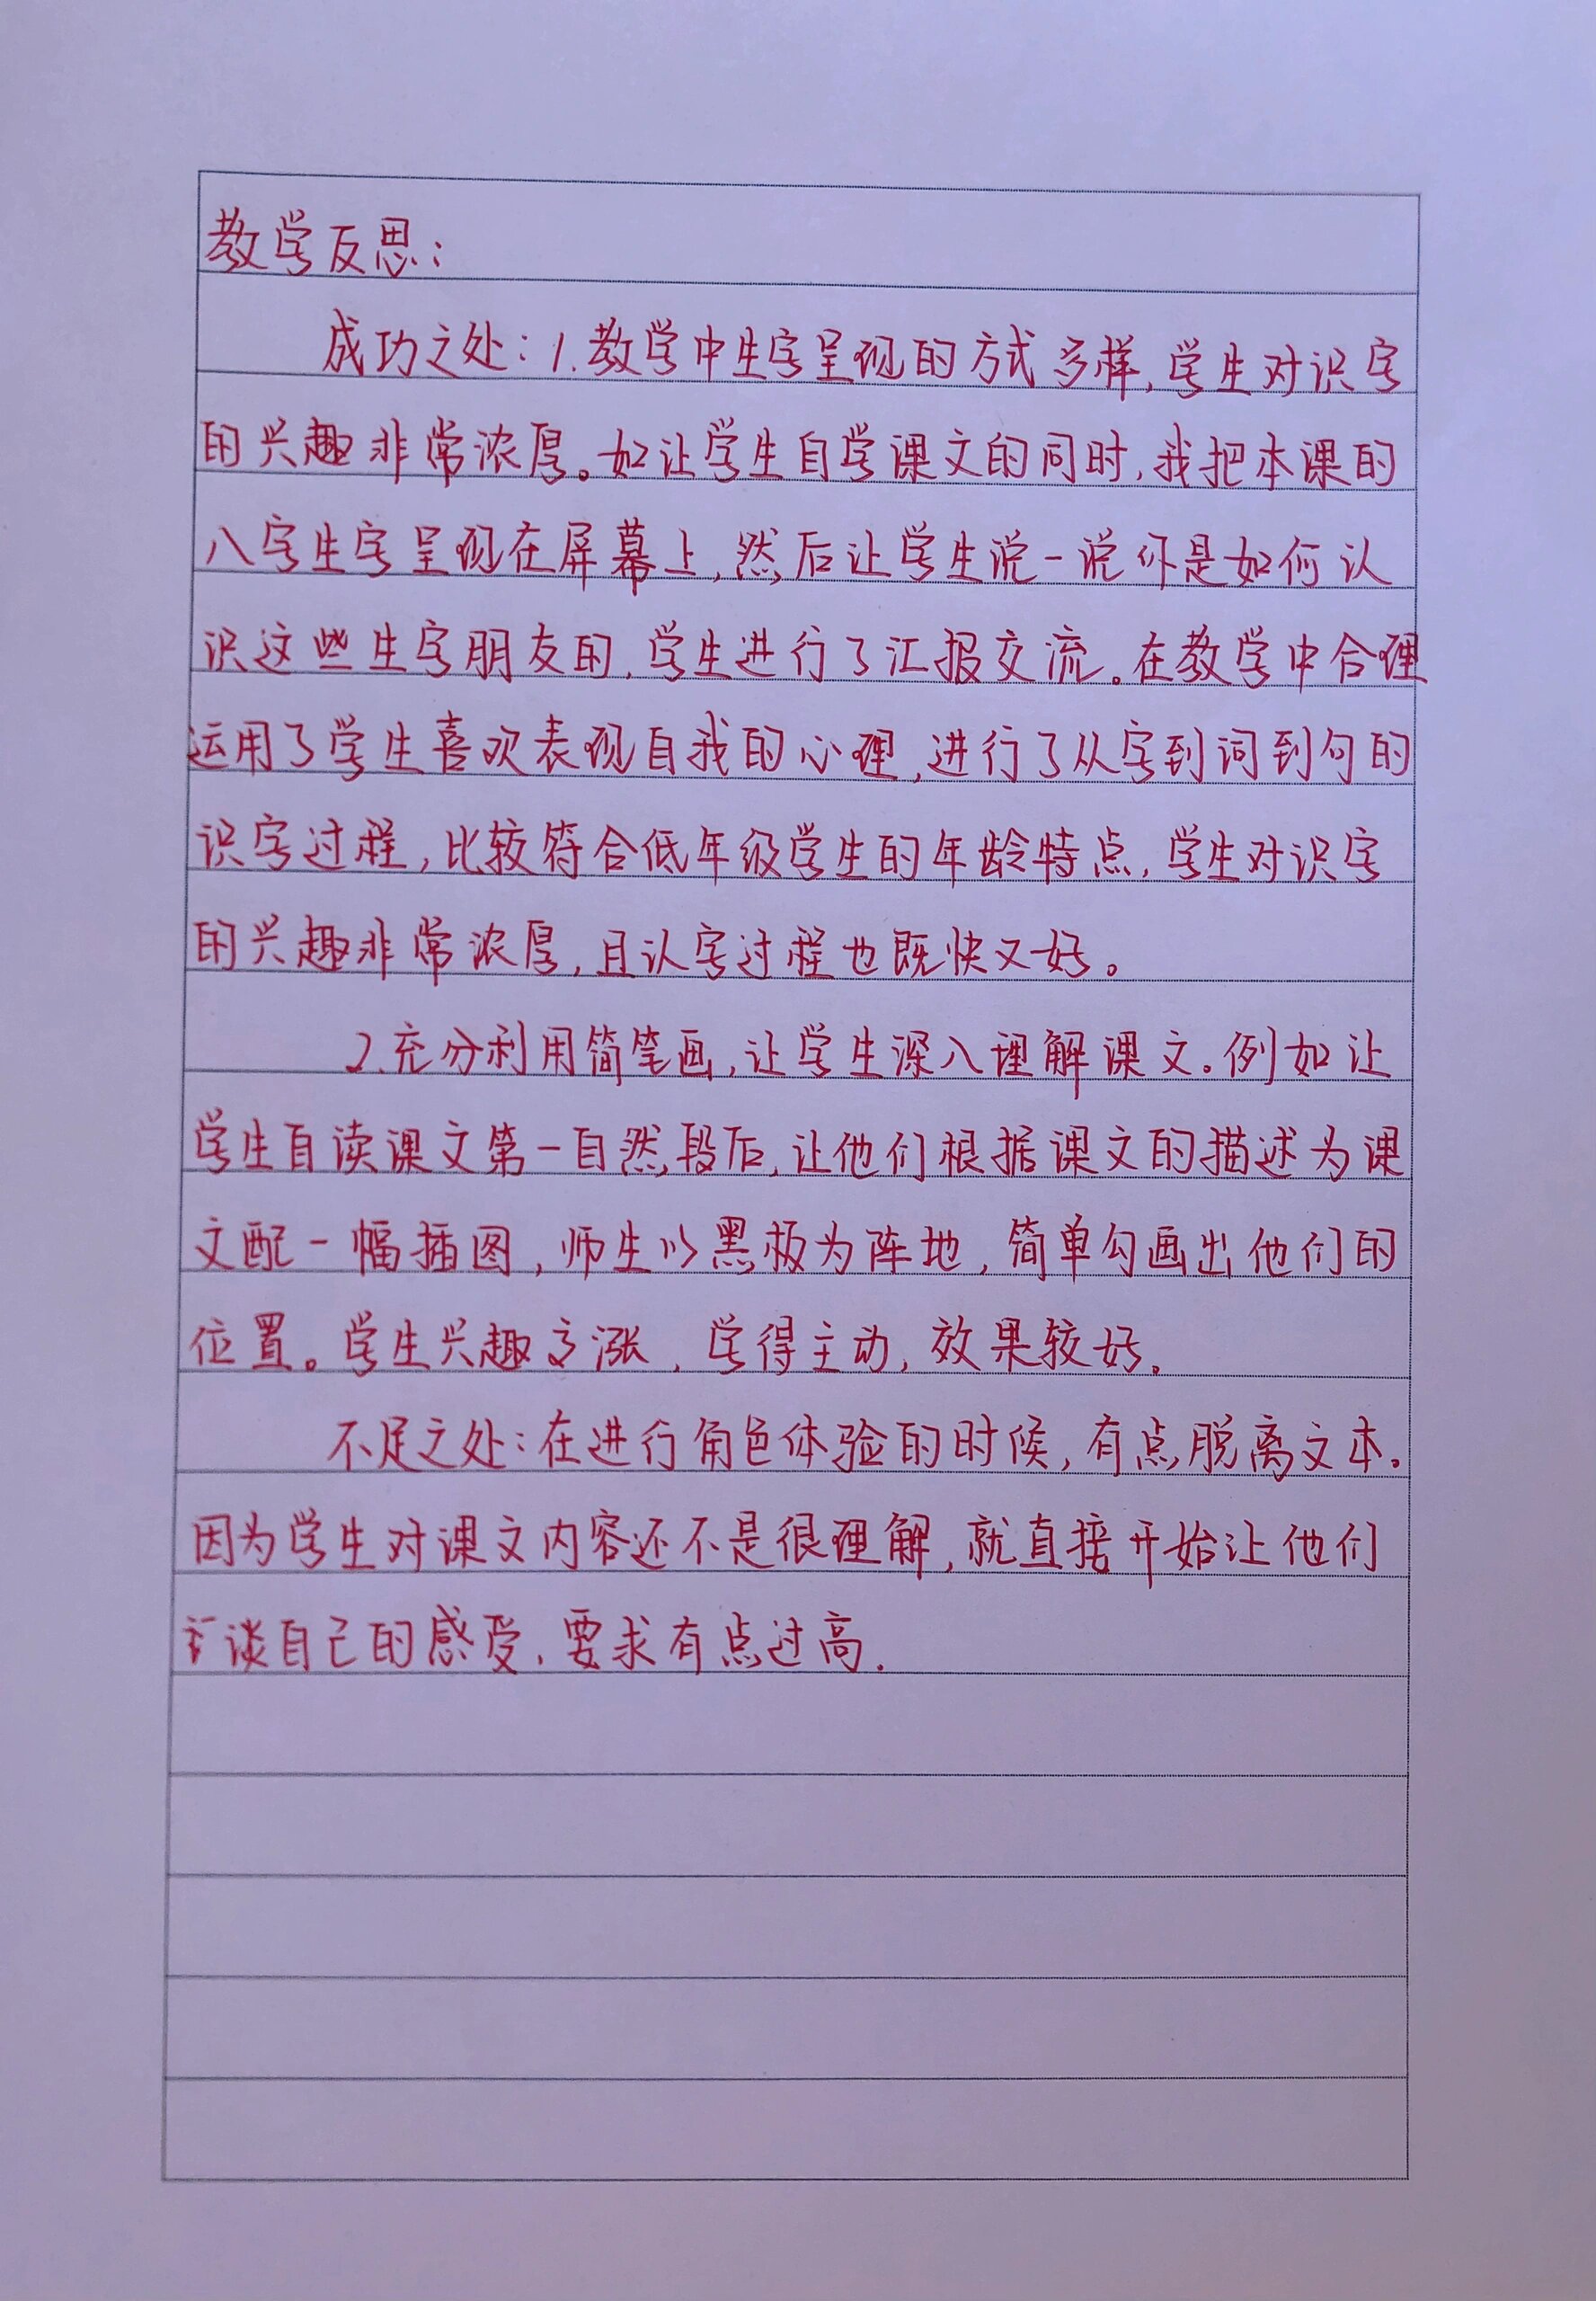 教学反思：
成功之处：1.教学中生字呈现的方式多样，学生对识字
的兴趣非常浓厚。如让学生自学课文的同时，我把本课的
八字生字呈现在屏幕上，然后让学生说一说你是如何认
识这些生字朋友的，学生进行了汇报交流。在教学中合理
运用了学生喜欢表现自我的心理，进行了从字到词到句的
识字过程，比较符合低年级学生的年龄特点，学生对识字
的兴趣非常浓厚，且认字过程也既快又好。
2.充分利用简笔画，让学生深入理解课文。例如让
学生自读课文第一自然段后，让他们根据课文的描述为课
文配一幅插图，师生以黑板为阵地，简单勾画出他们的
位置。学生兴趣高涨，学得主动，效果较好。
不足之处：在进行角色体验的时候，有点脱离文本。
因为学生对课文内容还不是很理解，就直接开始让他们
谈自己的感受，要求有点过高.